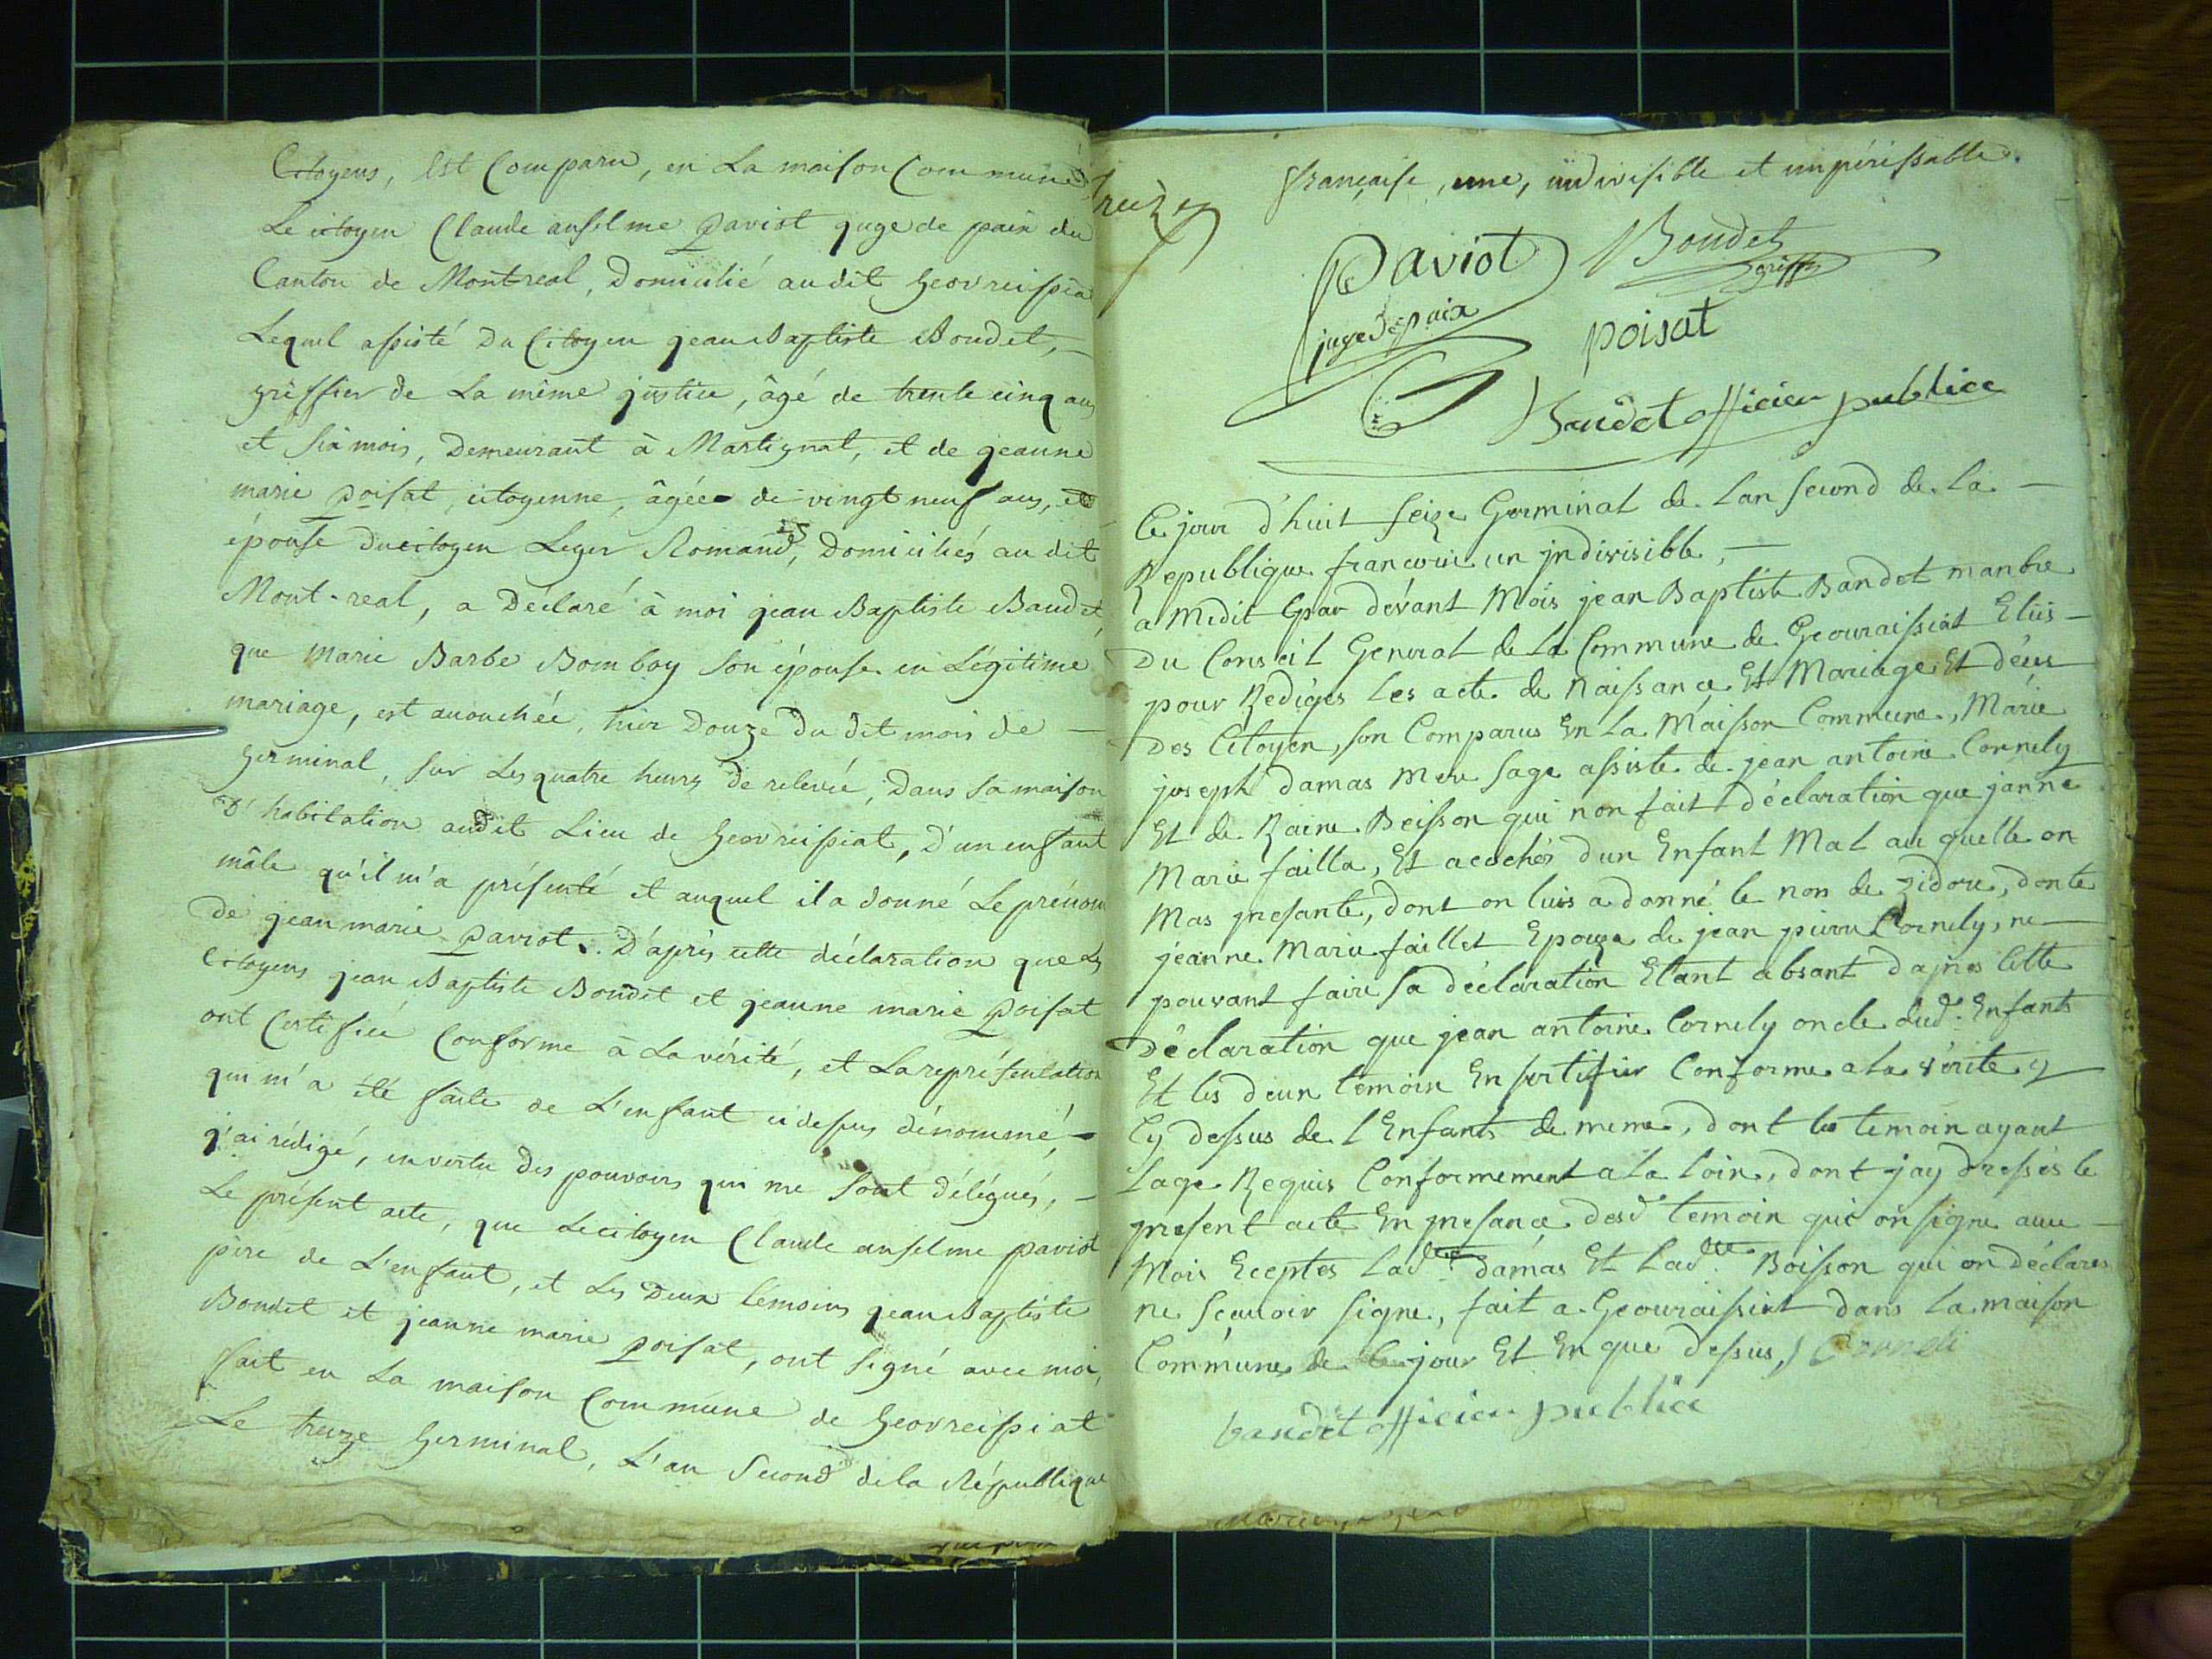 Citoyens, Est Comparu, en La maison Commune
Le citoyen Claude anselme Paviot juge de paix du
Canton de Montreal, Domicilié audit Geovreissiat
Lequel assisté Du Citoyen jean Baptiste Boudet,
greffier de La même justice, âgé de trente cinq ans
et six mois, Demeurant à Martignat, et de jeanne
marie poisat, citoyenne, âgée de vingt neuf ans, et
épouse du citoyen Leger Romand, Domiciliés au dit
Mont-real, a Déclaré à moi jean Baptiste Baudet,
que Marie Barbe Bomboy Son épouse en Légitime
mariage, est accouchée, hier Douze Du dit mois de
Germinal, Sur Les quatre heures De relevée, Dans Sa maison
D'habitation audit Lieu de Geovreissiat, D'un enfant
mâle qu'il m'a présenté et auquel il a donné Le prénom
De jean marie Paviot. D'après cette déclaration que Les
Citoyens jean Baptiste Boudet et jeanne marie Poisat
ont Certifiée Conforme à La vérité, et La représentation
qui m'a été faite de L'enfant ci dessus dénommé,
j'ai rédigé, en vertu Des pouvoirs qui me Sont délégués,
Le présent acte, que Le citoyen Claude anselme paviot
père de L'enfant, et Les Deux témoins jean Baptiste
Boudet et jeanne marie poisat, ont Signé avec moi,
fait en La maison Commune de Geovreissiat
Le treize Germinal, L'an Second de la République
française, une, indivisible et impérissable.
Paviot Boudet
juge de paix greffier
poisat
Baudet officier publice
Ce jour d'huit seize Germinal de lan second de la
Republique francoise un jndivisible,
a Midit par dévant Mois jean Baptiste Baudet manbre
Du Conseil General de la Commune de Geouraissiat Elüis
pour Rediges les acte de Naissance Et Mariage Et déces
Des Citoyen, son Comparus En La Maisson Commune, Marie
joseph damas mere sage assiste de jean antoine Cornely
Et de Raine Beisson qui non fait déclaration que janne
Marie failla, Et acochés dun Enfant Mal au quelle on
Mas presante, dont on luis a donné le non de zidore, donte
jeanne Marie faillet Epouze de jean pierre Cornely, ne
pouvant faire sa déclaration Etant absant dapres Cette
Déclaration que jean antoine Cornely oncle dud. Enfants
Et les deux temoin En sertifier Conforme a la vérite
Cy dessus de l'Enfants de meme, dont les temoin ayant
Lage Requis Conformement a la loix, dont jay dressés le
present acte En presance desd temoin qui on signe avec
Mois Eceptes Lad. damas Et Lad. Boisson qui on déclares
ne Scauoir signe, fait a Geouraissiat dans la maison
Commune de le jour Et En que dessus, Corneli
baudet officier publice